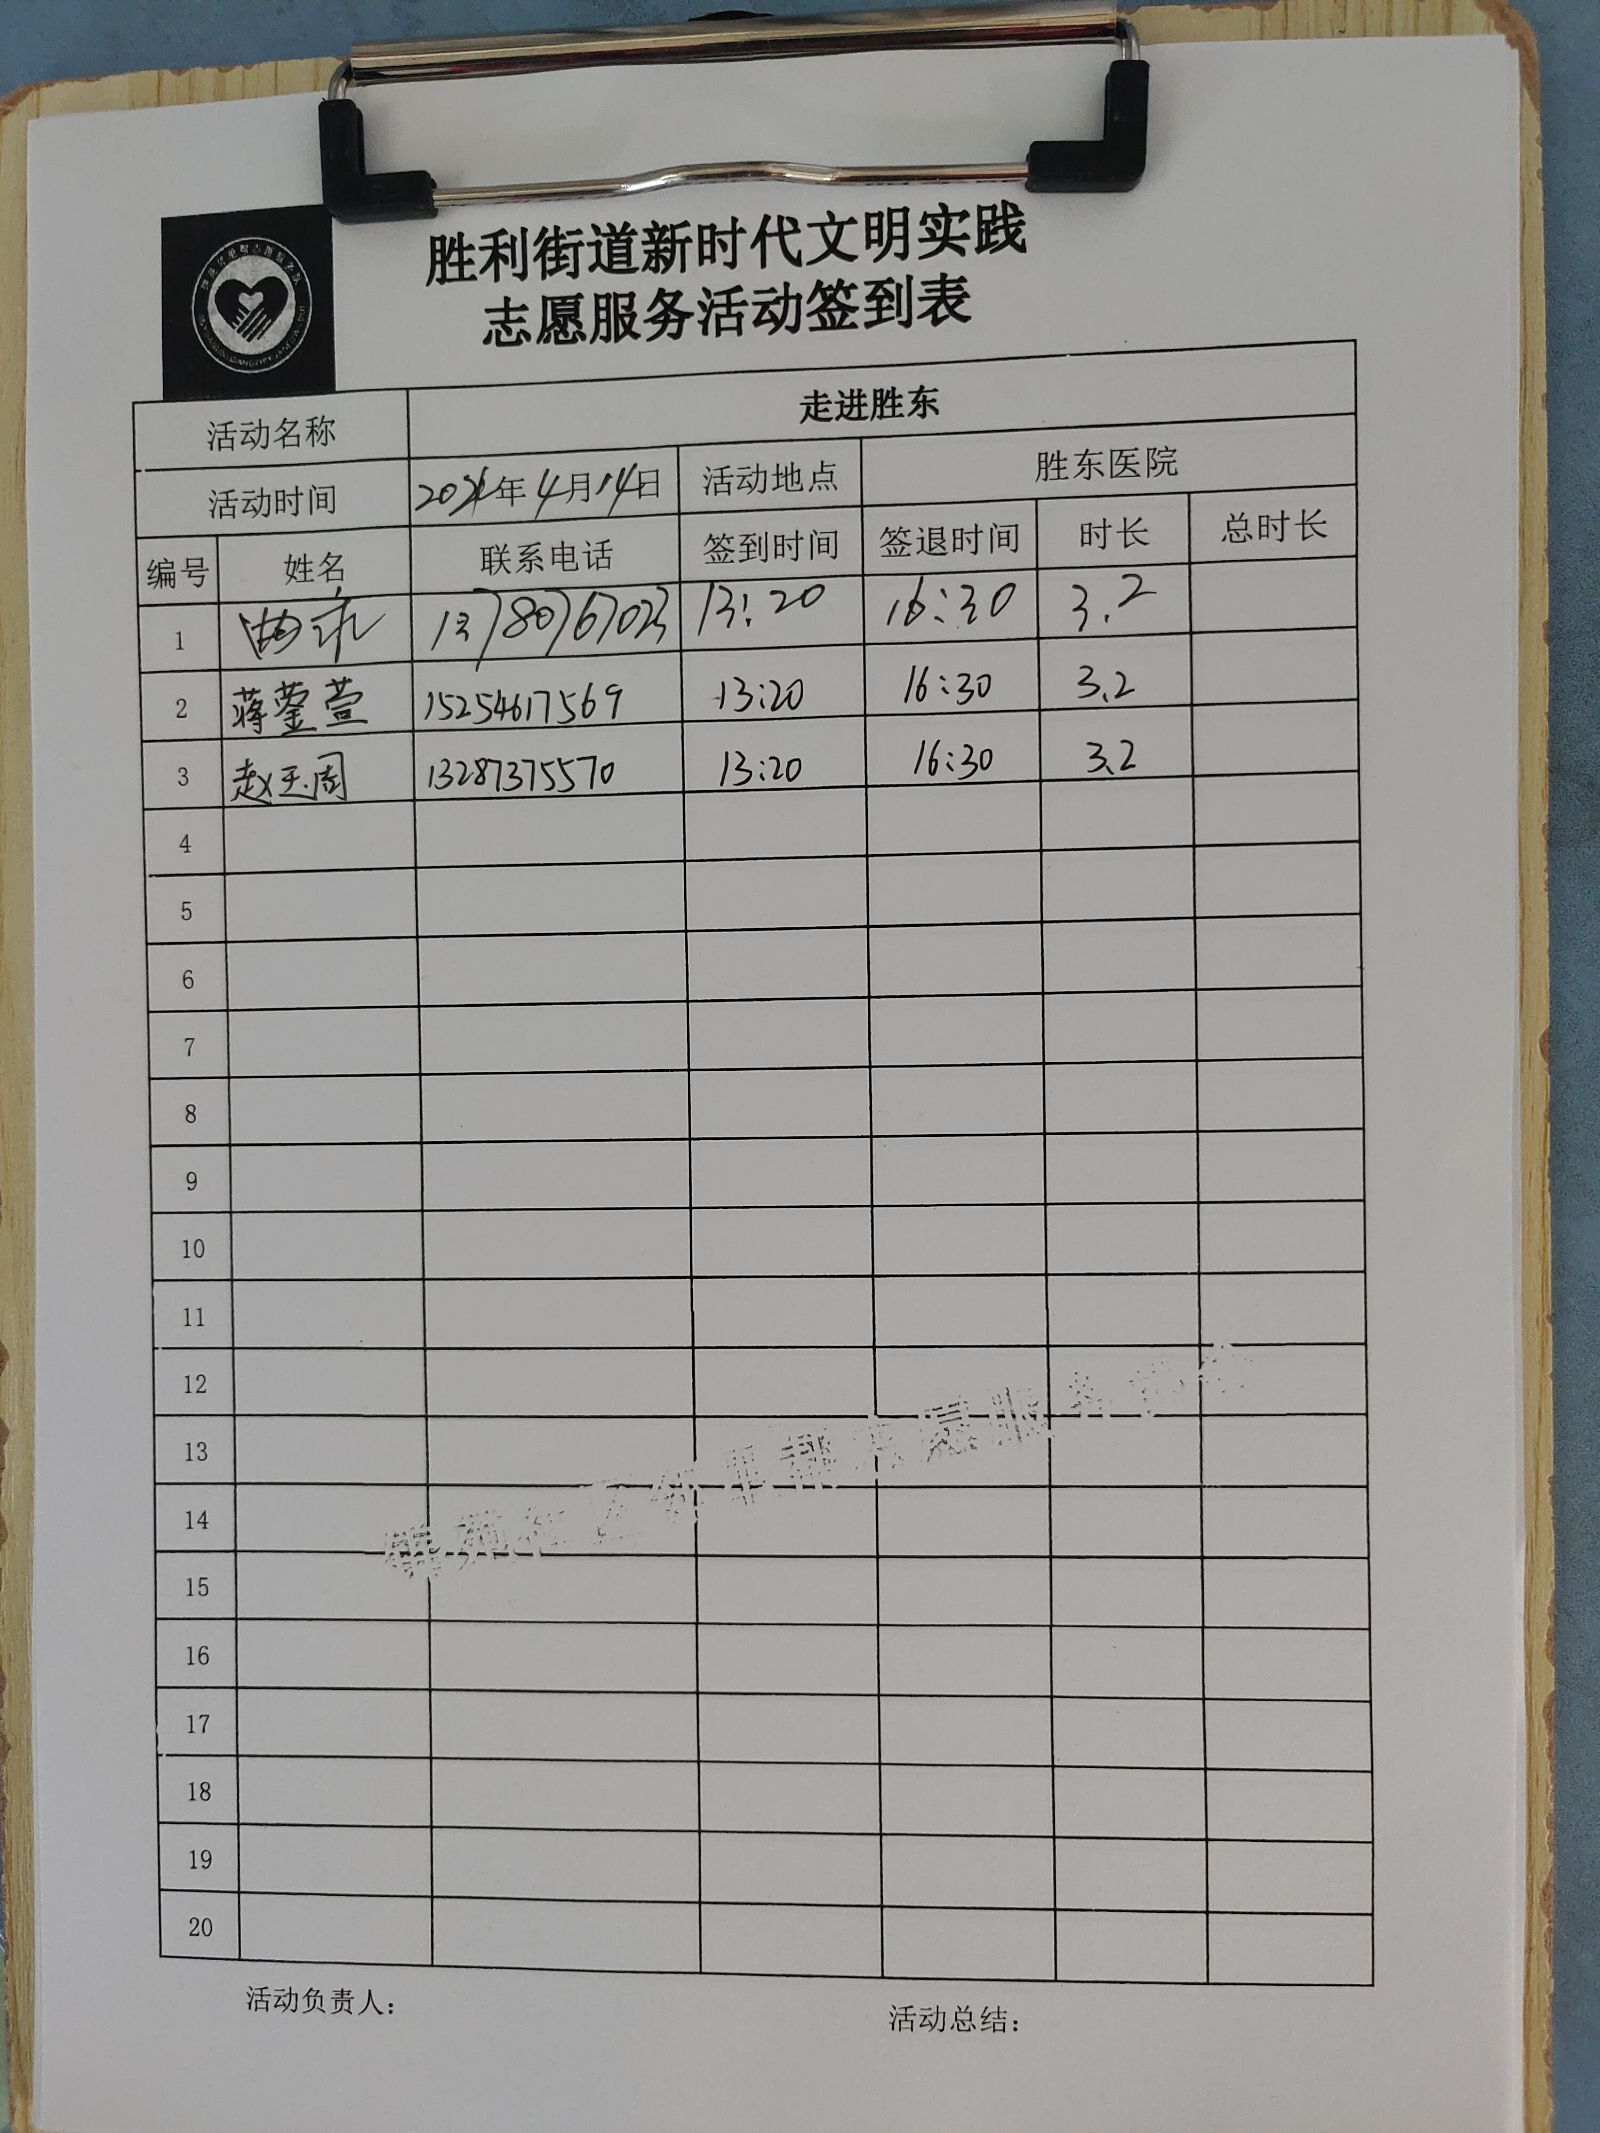 胜利街道新时代文明实践
志愿服务活动签到表
活动名称 走进胜东
活动时间 2021年4月14日 活动地点 胜东医院
编号 姓名 联系电话 签到时间 签退时间 时长 总时长
1 13780767023 13:20 16:30 3.2
2 蒋蓥萱 15254617569 13:20 16:30 3.2
3 赵天周 13287375570 13:20 16:30 3.2
4
5
6
7
8
9
10
11
12
13
14
15
16
17
18
19
20
活动负责人：
活动总结：